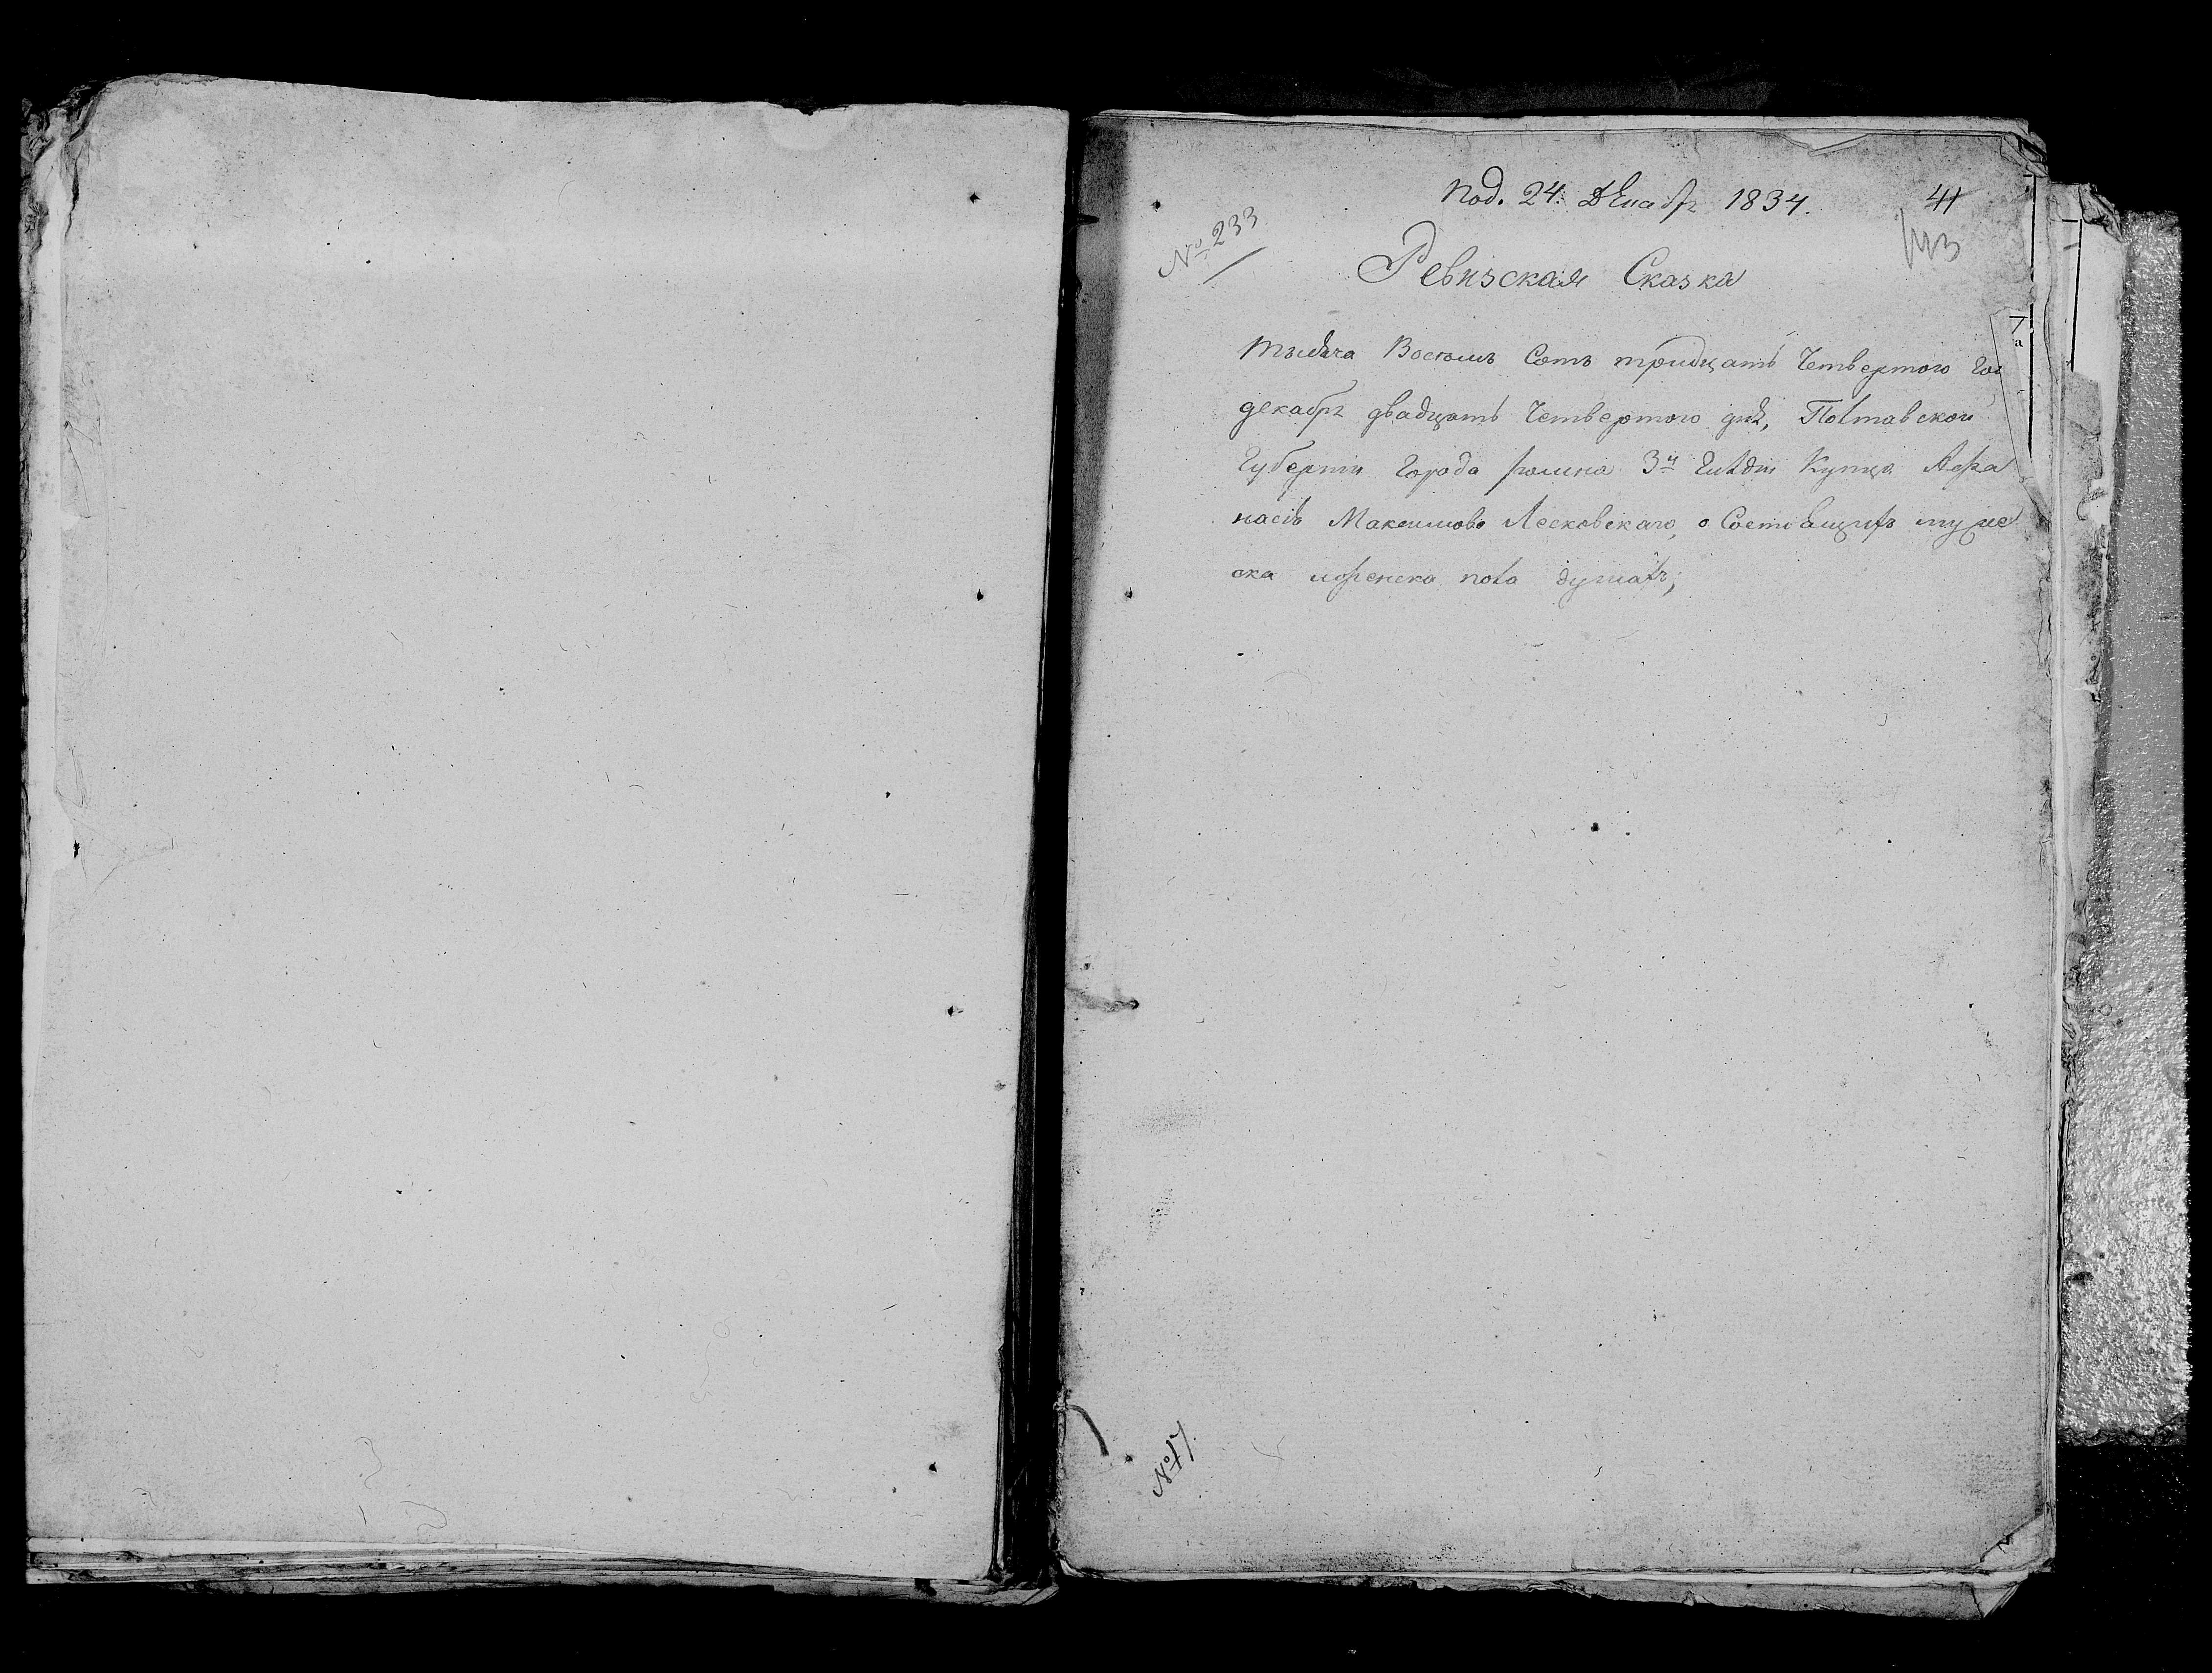 № 233
Под. 24. Декабр 1834.
41
Ревизская Сказка
тысяча Восемь Сотъ тридцать Четвертого Го
декабря двадцать Четвертого дня, Полтавской
Губерніи Города ромна 3й Гилдіи Купца Афа
насія Максимова Лесковскаго, о Состоящихъ муже
ска иженска пола душахъ;
№ 17